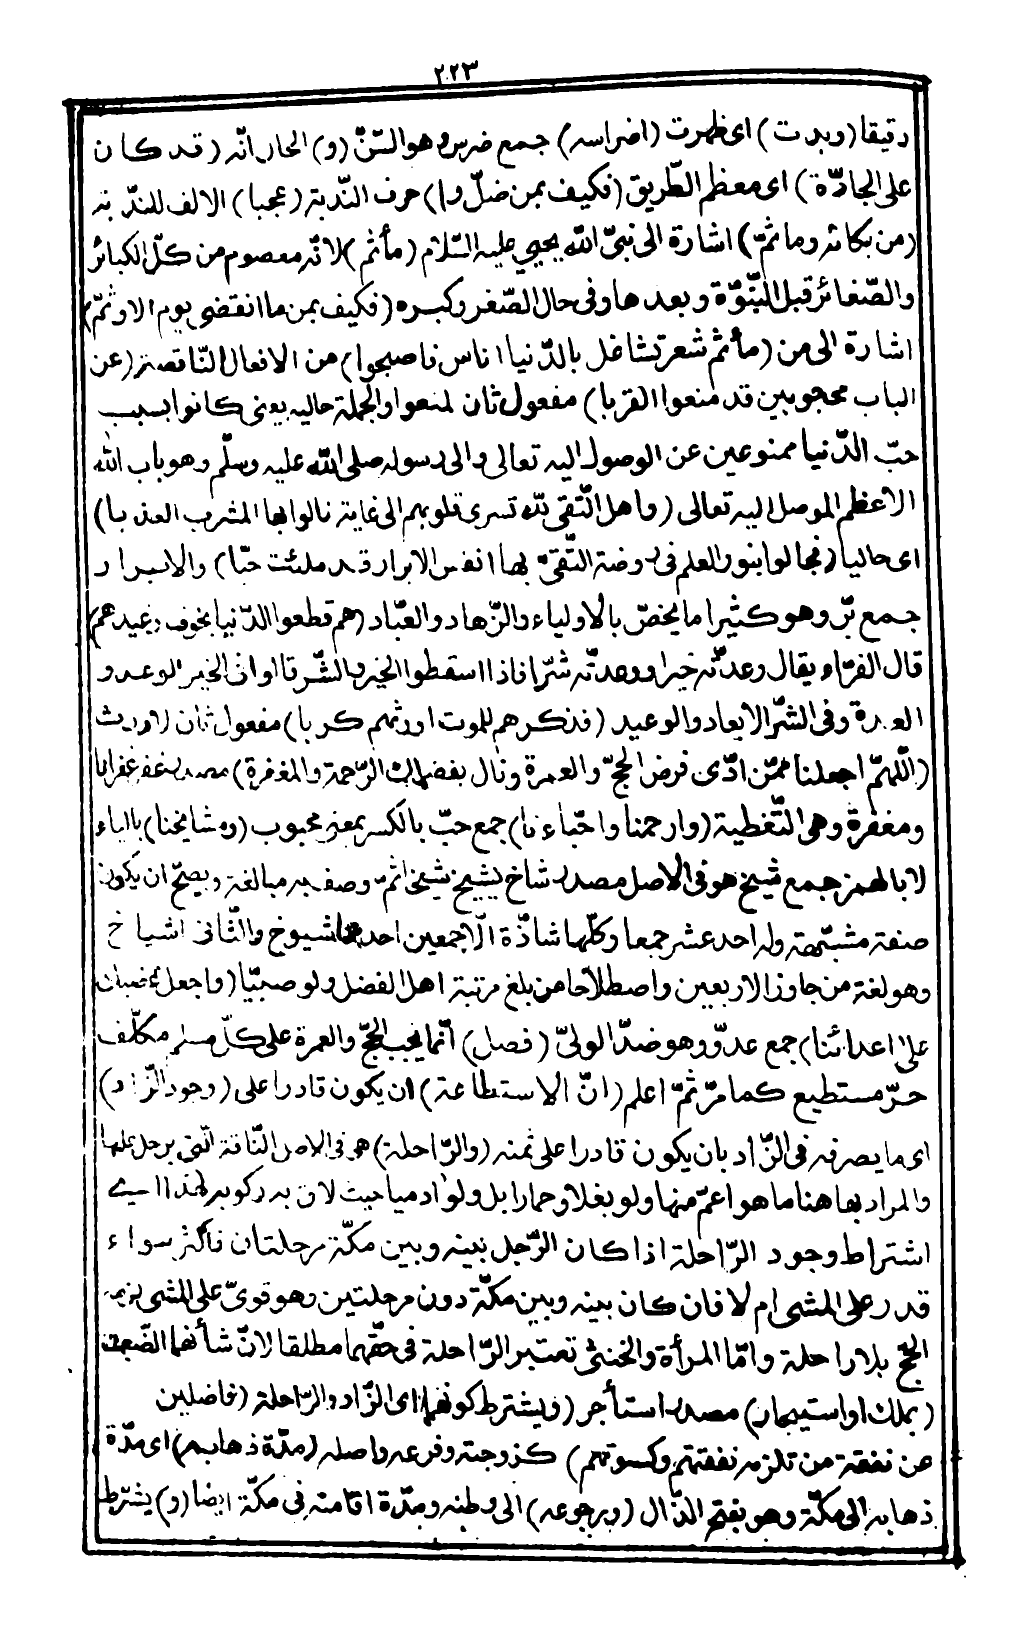 ٢٢٣
دقيقا (وبدت) اى ظهرت (اضراسه) جمع ضرس وهو السّنّ (و) الحال انّه (قد كان
على الجادّة) اى معظم الطّريق (فكيف بمن ضلّ وا) حرف النّدبة (عجبا) الالف للنّدبة
(من بكائه وما ثمّ) اشارة الى نبىّ الله يحيى عليه السّلام (مأثم) لانّه معصوم من كلّ الكبائر
والصّغائر قبل النّبوّة وبعدها وفى حال الصّغر وكبره (فكيف بمن ما انقضى يوم الا وثمّ)
اشارة الى من (مأثم شعر تشاغل بالدّنيا اناس فاصبحوا) من الافعال النّاقصة (عن
الباب محجوبين قد منعوا القربا) مفعول ثان لمنعوا والجملة حالية يعنى كانوا بسبب
حبّ الدّنيا ممنوعين عن الوصول اليه تعالى والى رسوله صلى الله عليه وسلّم وهو باب الله
الاعظم الموصل اليه تعالى (واهل التّقى لله تسرى قلوبهم الى غاية نالوا بها المشرب العذبا)
اى حاليا (فجالوا بنور العلم فى روضة التّقى * بها انفس الابرار قد ملئت حبّا) والابرار
جمع برّ وهو كثيرا ما يخصّ بالاولياء والزّهاد والعبّاد (هم قطعوا الدّنيا بخوف وعيدهم)
قال الفرّاء يقال وعدّته خيرا ووعدته شرّا فاذا اسقطوا الخير والشّر قالوا فى الخير الوعد و
العدة وفى الشّر الايعاد والوعيد (فذكرهم للموت اورثهم كربا) مفعول ثان لاورث
(اللّهمّ اجعلنا ممّن ادّى فرض الحجّ والعمرة ونال بفضلك الرّحمة والمغفرة) مصدر غفر غفرانا
ومغفرة وهى التّغطية (وارحمنا واحبّاءنا) جمع حبّ بالكسر بمعنى محبوب (ومشايخنا) بالياء
لا بالهمز جمع شيخ هو فى الاصل مصدر شاخ يشيخ شيخا ثمّ وصف به مبالغة ويصحّ ان يكون
صفة مشبّهة وله احد عشر جمعا وكلّها شاذّة الّا جمعين احدهما شيوخ والثّانى اشياخ
وهو لغة من جاوز الاربعين واصطلاحا من بلغ مرتبة اهل الفضل ولو صبيّا (واجعل غضبك
على اعدائنا) جمع عدوّ وهو ضدّ الولىّ (فصل) انّما يجب الحجّ والعمرة على كلّ مسلم مكلّف
حرّ مستطيع كما مرّ ثمّ اعلم (انّ الاستطاعة) ان يكون قادرا على (وجود الزّاد)
اى ما يصرفه فى الزّاد بان يكون قادرا على ثمنه (والرّاحلة) هو فى الاصل النّاقة الّتى يرحل عليها
والمراد بها هنا ما هو اعمّ منها ولو بغلا وحمارا بل ولو ادميا حيث لاق به ركوبه لهذا اى
اشتراط وجود الرّاحلة اذا كان الرّجل بينه وبين مكّة مرحلتان فاكثر سواء
قدر على المشى ام لا فان كان بينه وبين مكّة دون مرحلتين وهو قوىّ على المشى لزمه
الحجّ بلا راحلة وامّا المرأة والخنثى تعتبر الرّاحلة فى حقّهما مطلقا لانّ شأنهما الضّعف
(بملك او استيجار) مصدر استأجر (ويشترط كونهما) اى الزّاد والرّاحلة (فاضلين
عن نفقة من تلزمه نفقتهم وكسوتهم) كزوجته وفرعه واصله (مدّة ذهابه) اى مدّة
ذهابه الى مكّة وهو بفتح الذّال (ورجوعه) الى وطنه ومدّة اقامته فى مكّة ايضا (و) يشترط